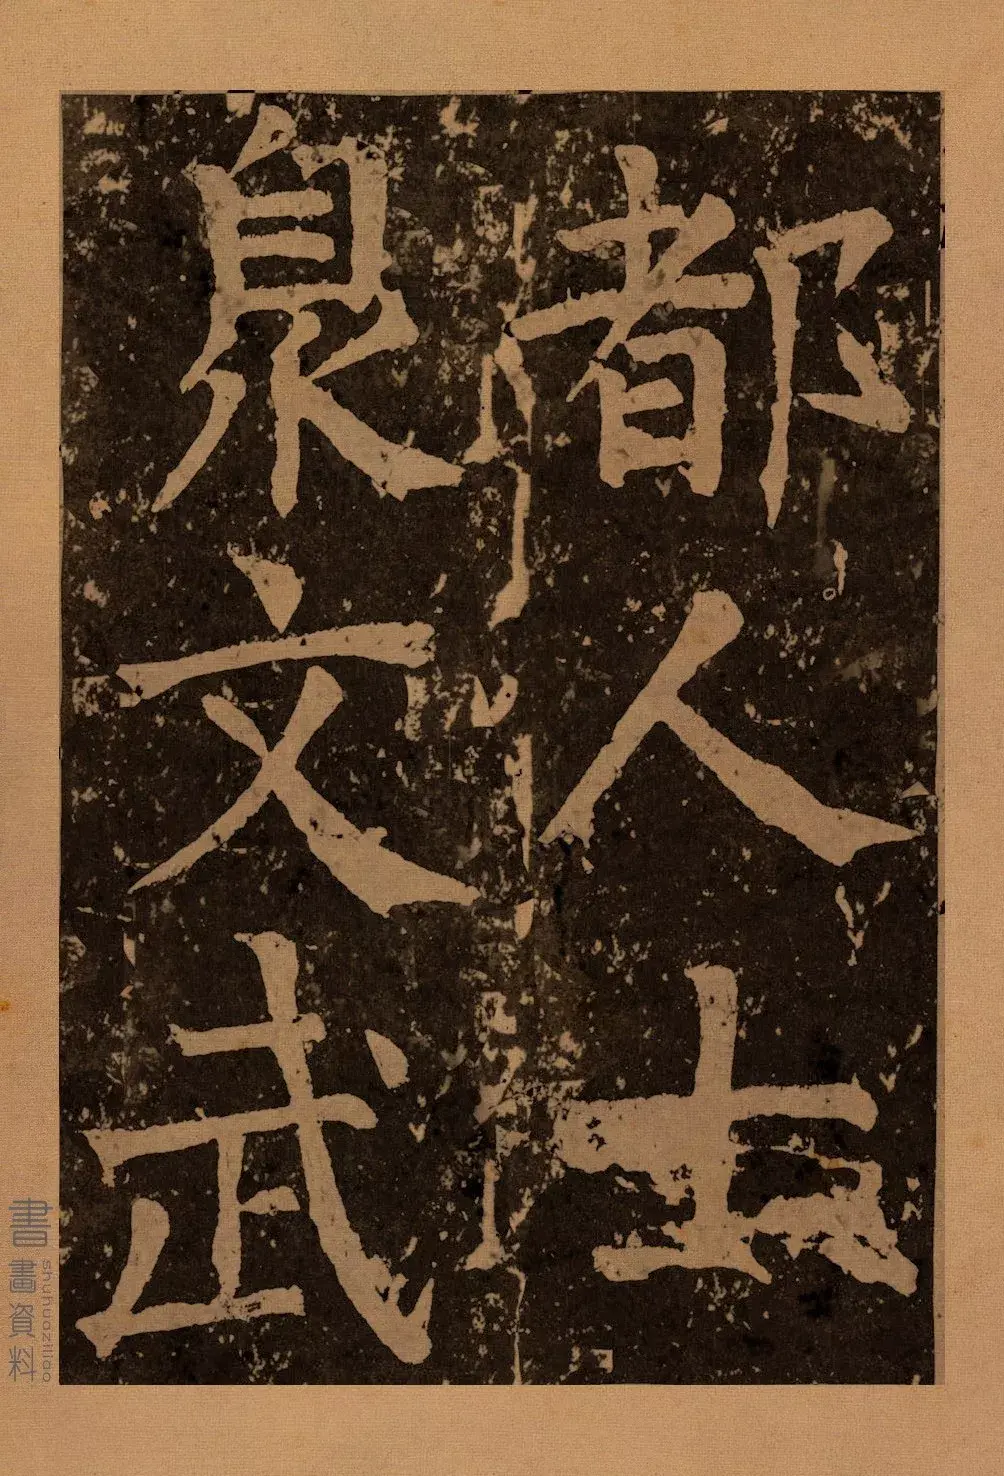 都人士
臮文武
書畫資料
shuhuaziliao